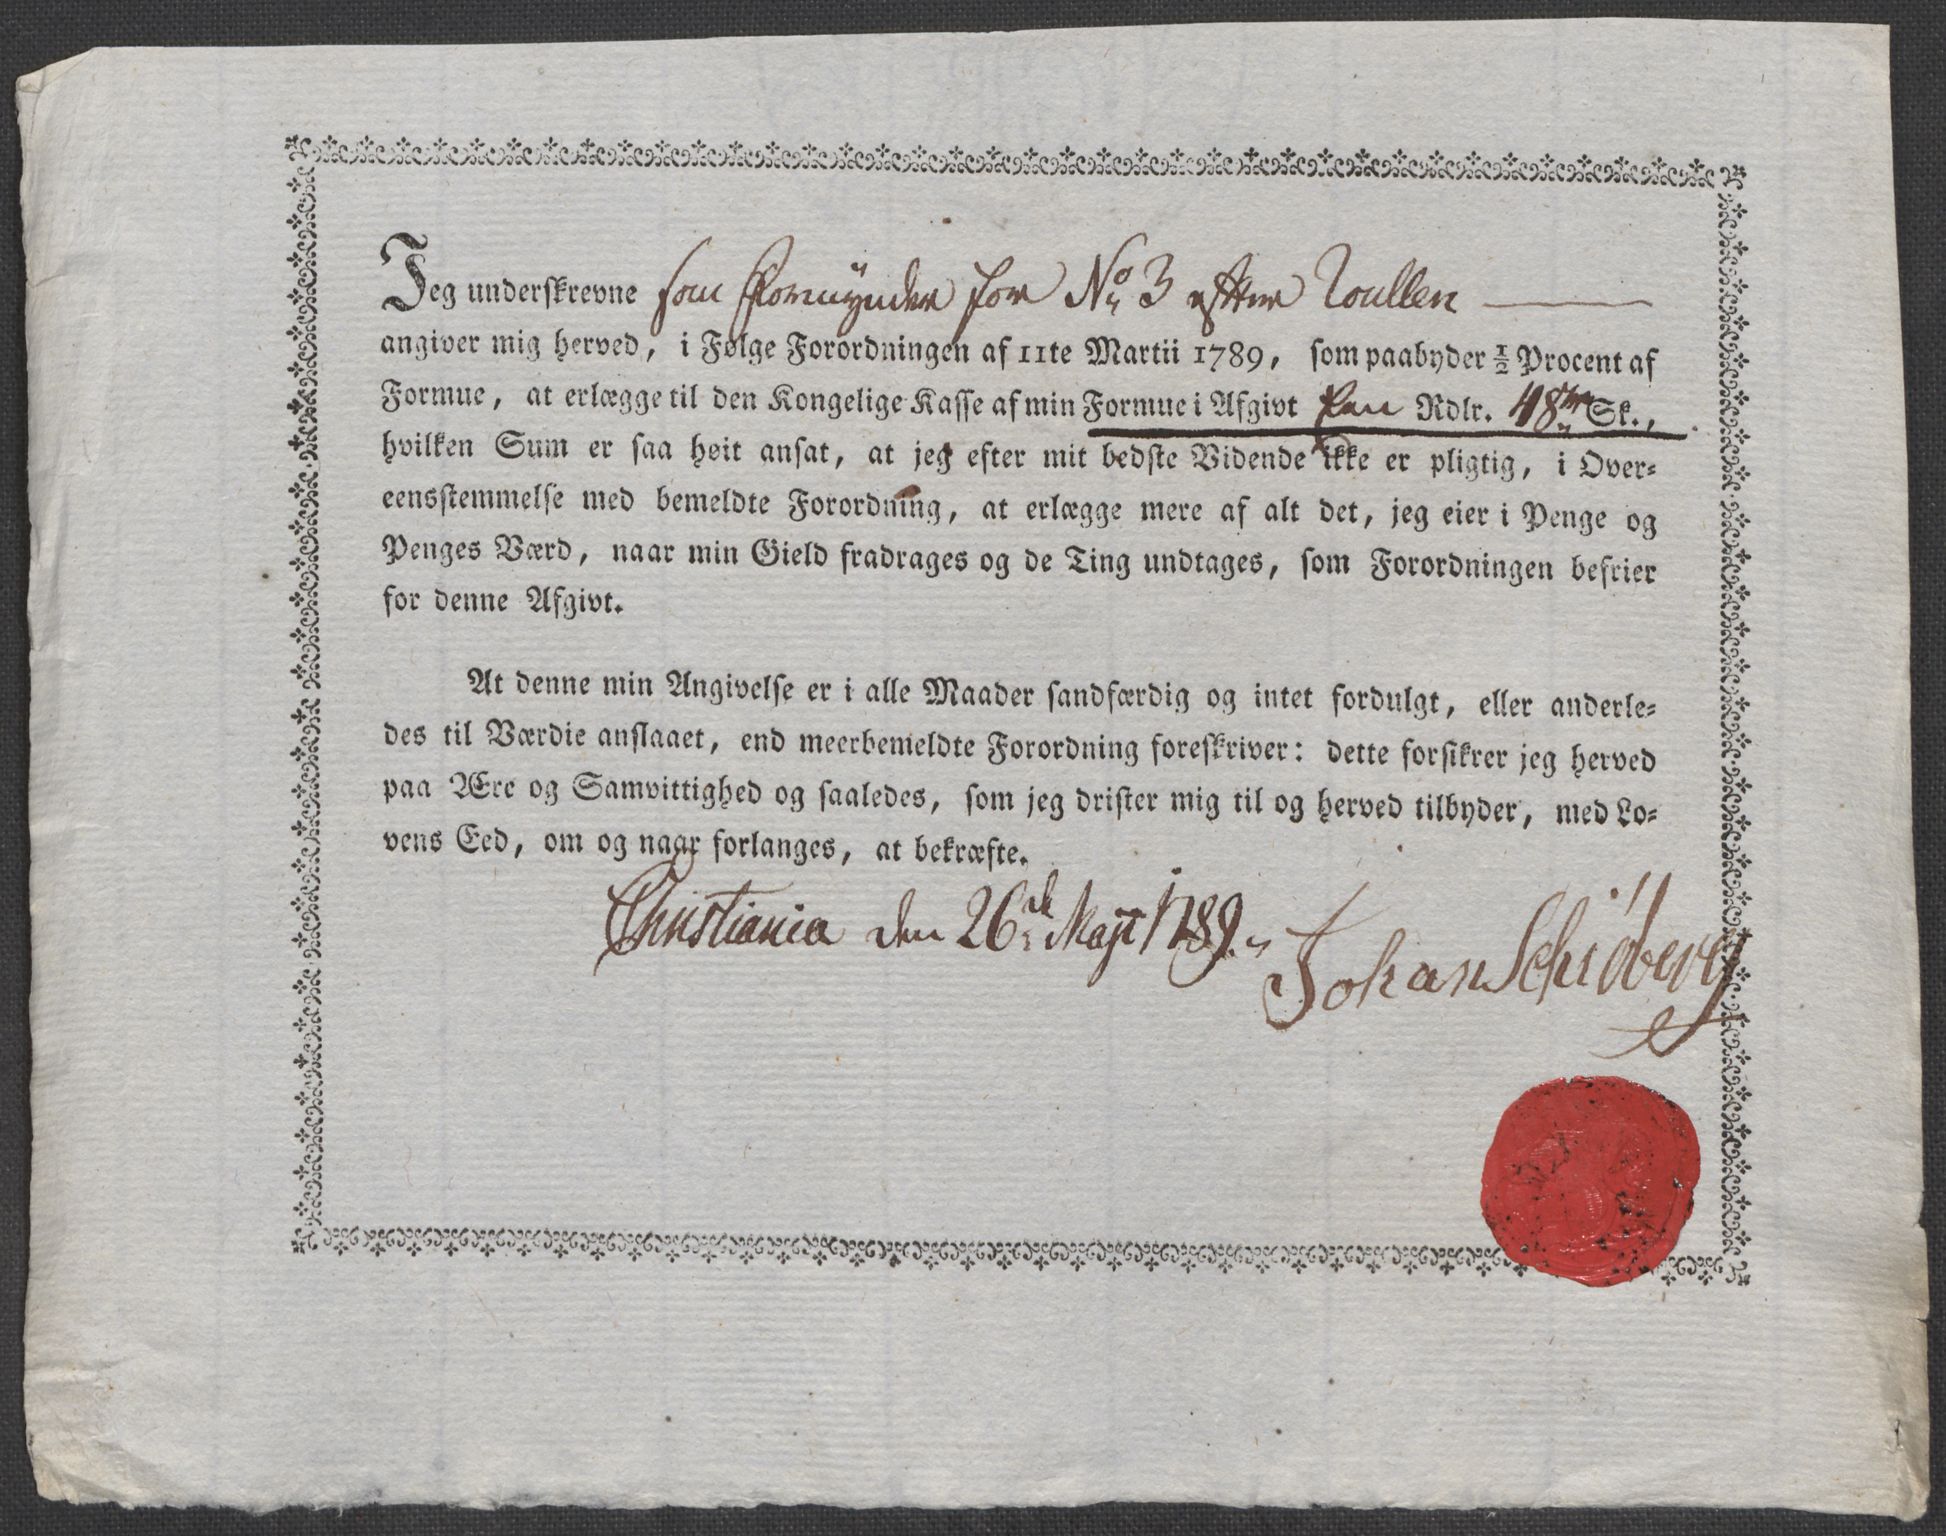 Jeg underskrevne som Formynder for No 3 efter Roullen
angiver mig herved, i Følge Forordningen af 11te Martii 1789, som paabyder ½ Procent af
Formue, at erlægge til den Kongelige Kasse af min Formue i Afgivt Rdlr. 48 Sk.,
hvilken Sum er saa høit ansat, at jeg efter mit bedste Vidende ikke er pligtig, i Over-
eensstemmelse med bemeldte Forordning, at erlægge mere af alt det, jeg eier i Penge og
Penges Værd, naar min Gield fradrages og de Ting undtages, som Forordningen befrier
for denne Afgivt.
At denne min Angivelse er i alle Maader sandfærdig og intet fordulgt, eller anderle-
des til Værdie anslaaet, end meerbemeldte Forordning foreskriver: dette forsikrer jeg herved
paa Ære og Samvittighed og saaledes, som jeg drister mig til og herved tilbyder, med Lo-
vens Eed, om og naar forlanges, at bekræfte.
Christiania den 26de Maji 1789.
Johan Schiöberg